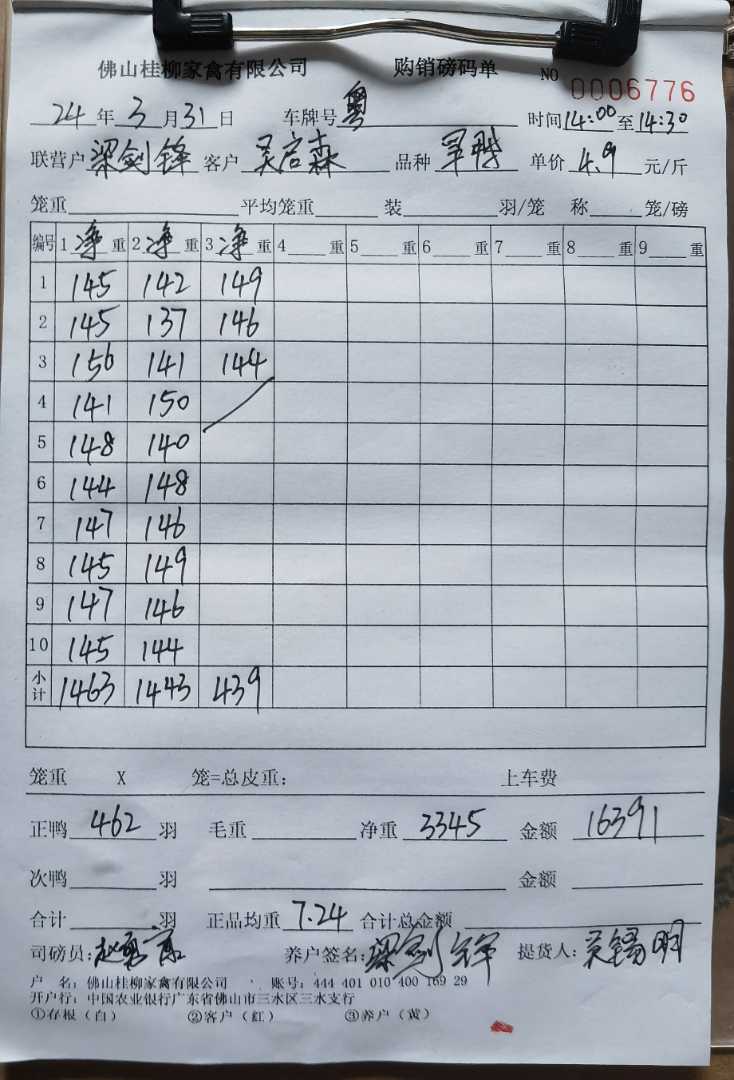 佛山桂柳家禽有限公司 购销磅码单 NO 0006776
24年3月31日 车牌号 粤 时间14:00至14:30
联营户 梁剑锋 客户 吴启森 品种 单价 4.9 元/斤
笼重 平均笼重 装 羽/笼 称 笼/磅
编号 1净重 2净重 3净重 4 重 5 重 6 重 7 重 8 重 9 重
1 145 142 149
2 145 137 146
3 156 141 144
4 141 150
5 148 140
6 144 148
7 147 146
8 145 149
9 147 146
10 145 144
小计 1463 1443 439
笼重 X 笼=总皮重: 上车费
正鸭 462 羽 毛重 净重 3345 金额 16391
次鸭 羽 金额
合计 羽 正品均重 7.24 合计总金额
司磅员: 养户签名: 梁剑锋 提货人: 吴锡明
户 名: 佛山桂柳家禽有限公司 账号: 444 401 010 400 169 29
开户行: 中国农业银行广东省佛山市三水区三水支行
①存根(白) ②客户(红) ③养户(黄)